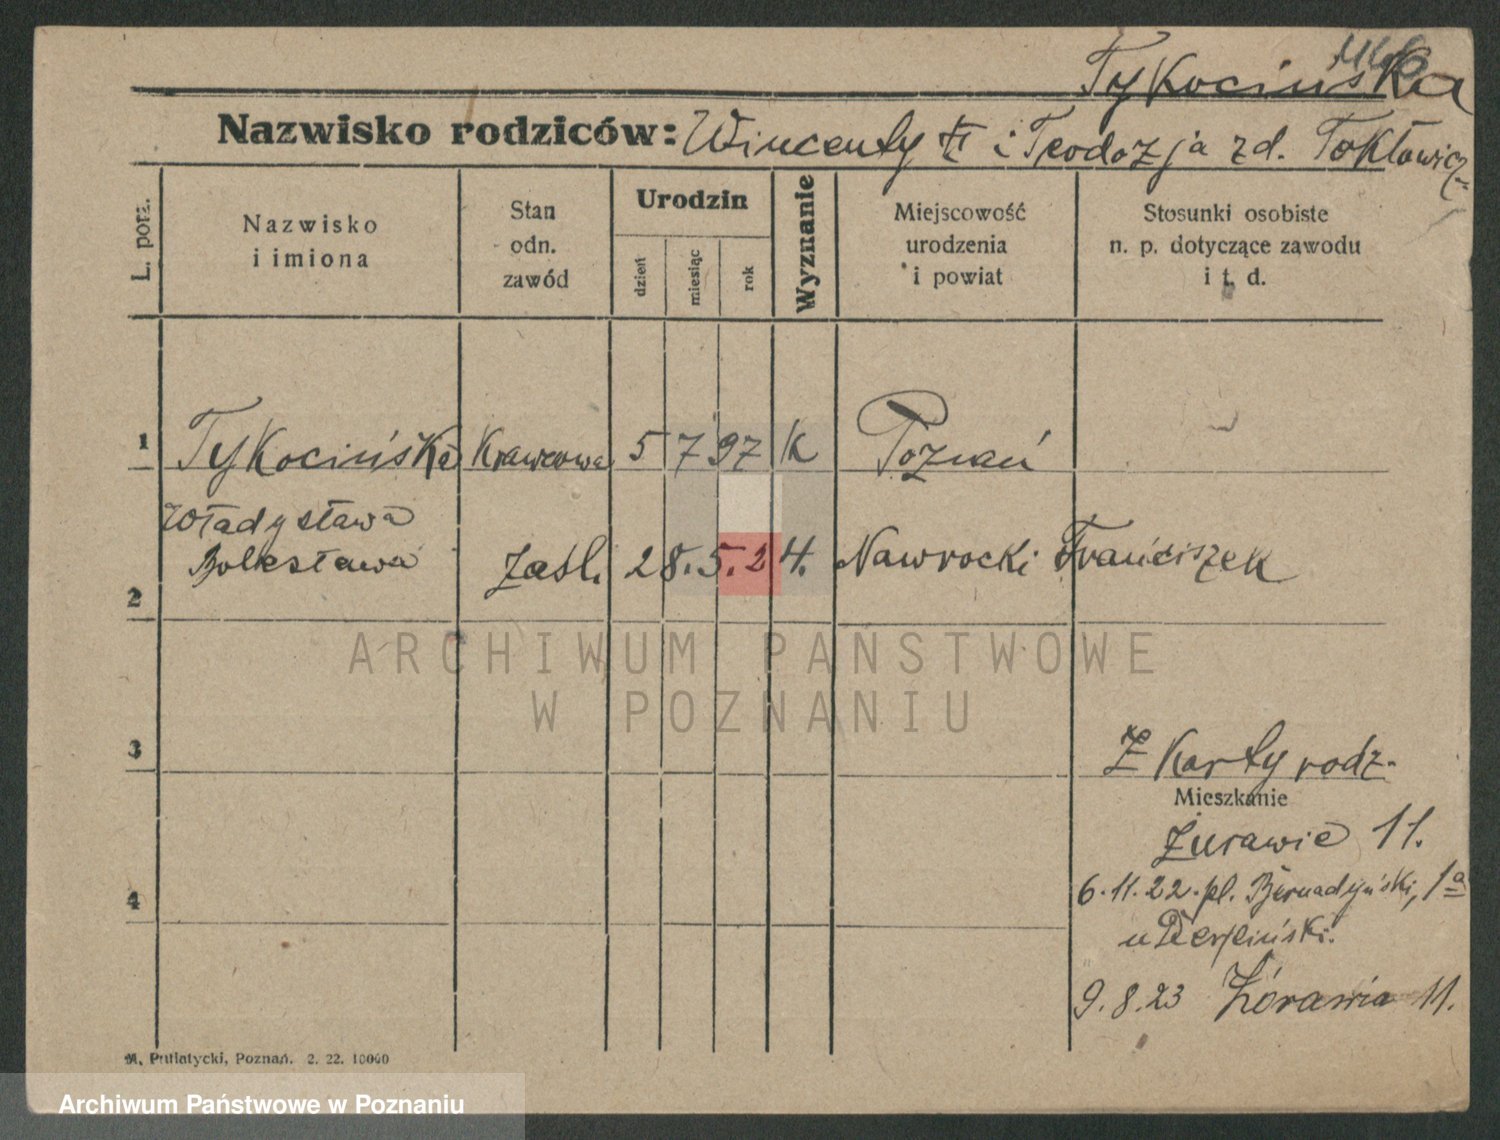 Tykocińska
Nazwisko rodziców: Wincenty i Teodozja zd.
L. porz.
Nazwisko
i imiona
Stan
odn.
zawód
Urodzin
dzień
miesiąc
rok
Wyznanie
Miejscowość
urodzenia
i powiat
Stosunki osobiste
n. p. dotyczące zawodu
i t. d.
1 Tykocińska Krawcowa 5 7 97 K Poznań
Władysława
Bolesława
2 zaśl. 28. 5. 24. Nawrocki Franciszek
ARCHIWUM PAŃSTWOWE
W POZNANIU
3 Z Karty rodz.
Mieszkanie
Żurawie 11.
4 6.11.22. pl. Bernadyński, 1a
u
9.8.23 Żórawia 11.
M. Putiatycki, Poznań. 2. 22. 10000
Archiwum Państwowe w Poznaniu